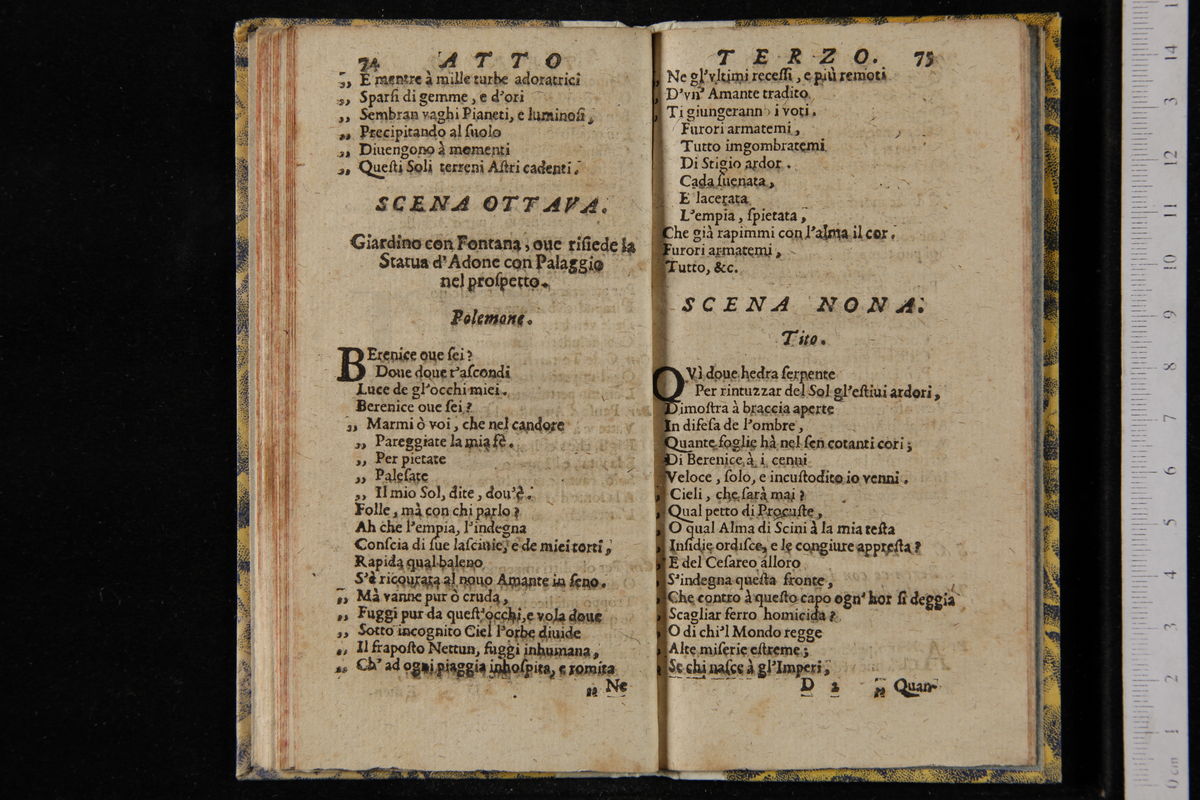 74 ATTO
„ E mentre à mille turbe adoratrici
„ Sparſi di gemme, e d'ori
„ Sembran vaghi Pianeti, e luminoſi,
„ Precipitando al ſuolo
„ Diuengono à momenti
„ Queſti Soli terreni Aſtri cadenti.
SCENA OTTAVA.
Giardino con Fontana, oue riſiede la
Statua d'Adone con Palaggio
nel proſpetto.
Polemone.
BErenice oue ſei?
Doue doue t'aſcondi
Luce de gl'occhi miei.
Berenice oue ſei?
„ Marmi ò voi, che nel candore
„ Pareggiate la mia fè.
„ Per pietate
„ Paleſate
„ Il mio Sol, dite, dou'è.
Folle, mà con chi parlo?
Ah che l'empia, l'indegna
Conſcia di ſue laſciuie, e de miei torti,
Rapida qual baleno
S'è ricourata al nouo Amante in ſeno.
„ Mà vanne pur ò cruda,
„ Fuggi pur da queſt'occhi, e vola doue
„ Sotto incognito Ciel l'orbe diuide
„ Il frapoſto Nettun, fuggi inhumana,
„ Ch' ad ogni piaggia inhoſpita, e romita
„ Ne
TERZO. 75
„ Ne gl'vltimi receſſi, e più remoti
„ D'vn' Amante tradito
„ Ti giungeranno i voti.
Furori armatemi,
Tutto imgombratemi
Di Stigio ardor.
Cada ſuenata,
E lacerata
L'empia, ſpietata,
Che già rapimmi con l'alma il cor.
Furori armatemi,
Tutto, &c.
SCENA NONA.
Tito.
QVì doue hedra ſerpente
Per rintuzzar del Sol gl'eſtiui ardori,
Dimoſtra à braccia aperte
In difeſa de l'ombre,
Quante foglie hà nel ſen cotanti cori;
Di Berenice à i cenni
Veloce, ſolo, e incuſtodito io venni.
„ Cieli, che ſarà mai?
„ Qual petto di Procuſte,
„ O qual Alma di Scini à la mia teſta
„ Inſidie ordiſce, e le congiure appreſta?
„ E del Ceſareo alloro
„ S'indegna queſta fronte,
„ Che contro à queſto capo ogn' hor ſi deggia
„ Scagliar ferro homicida?
„ O di chi'l Mondo regge
„ Alte miſerie eſtreme;
„ Se chi naſce à gl'Imperi,
D 2 „ Quan-